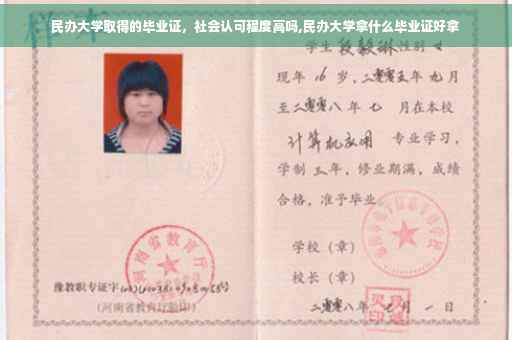 民办大学取得的毕业证，社会认可程度高吗,民办大学拿什么毕业证好拿
样本
学生 段毅琳 性别 女
现年 16 岁,二零零五年 九月
至二零零八年 七 月在本校
计算机应用 专业学习,
学制 三年，修业期满，成绩
合格，准予毕业
学校（章）
校长（章）
二零零八年 七月 一日
河南省教育厅
豫教职专证字
（河南省教育厅验印）